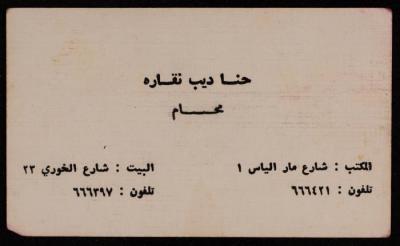 حنا ديب نقاره
محام
المكتب : شارع مار الياس 1
تلفون : ٦٦٦٤٢١
البيت : شارع الخوري ٢٣
تلفون : ٦٦٦٣٩٧